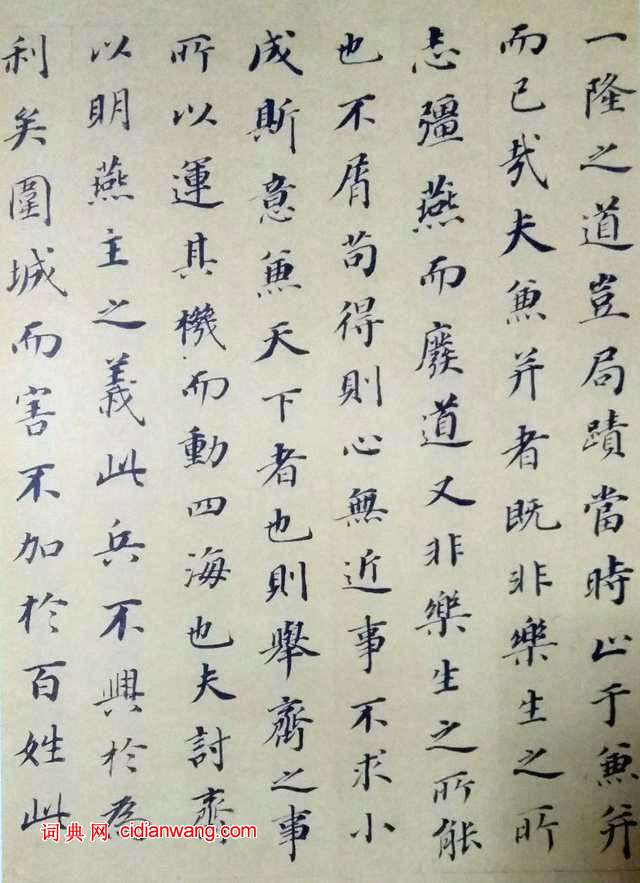 一隆之道豈局蹟當時止于兼并
而已哉夫兼并者既非樂生之所
志彊燕而廢道又非樂生之所能
也不屑苟得則心無近事不求小
成斯意兼天下者也則舉齊之事
所以運其機而動四海也夫討齊
以明燕主之義此兵不興於為
利矣圍城而害不加於百姓此
词典网 cidianwang.com